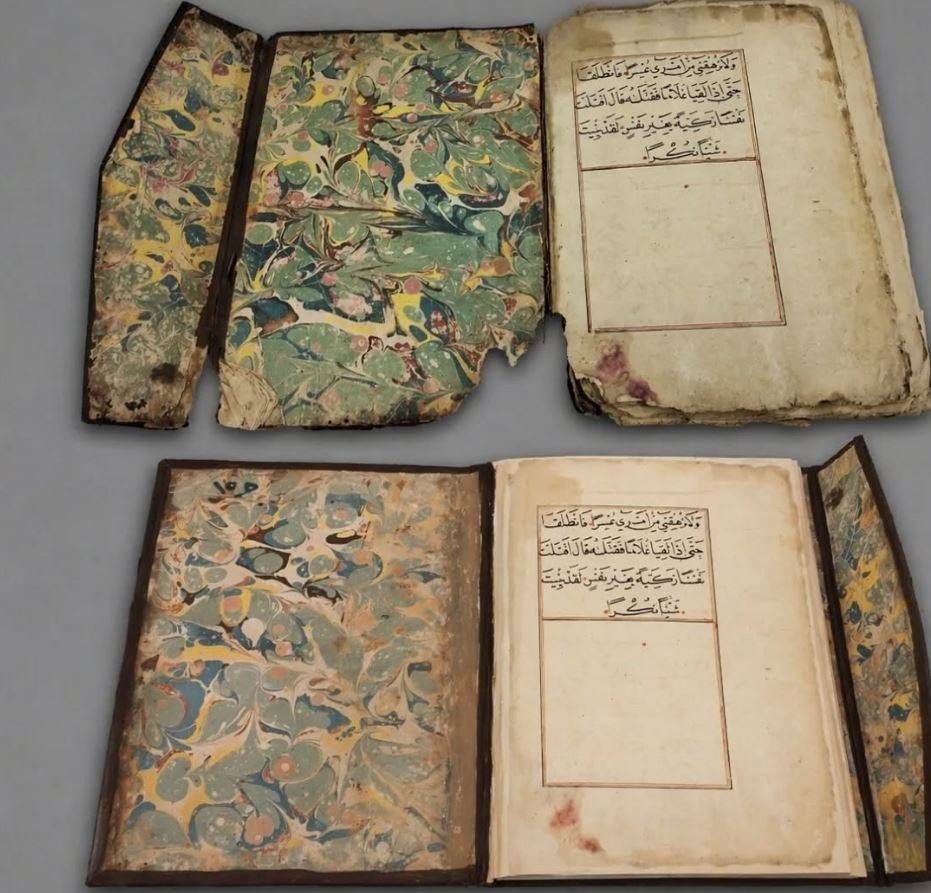 وَلَا تُرْهِقْنِي مِنْ أَمْرِي عُسْرًا فَانْطَلَقَا
حَتَّى إِذَا لَقِيَا غُلَامًا فَقَتَلَهُ قَالَ أَقَتَلْتَ
نَفْسًا زَكِيَّةً بِغَيْرِ نَفْسٍ لَقَدْ جِئْتَ
شَيْئًا نُكْرًا
وَلَا تُرْهِقْنِي مِنْ أَمْرِي عُسْرًا فَانْطَلَقَا
حَتَّى إِذَا لَقِيَا غُلَامًا فَقَتَلَهُ قَالَ أَقَتَلْتَ
نَفْسًا زَكِيَّةً بِغَيْرِ نَفْسٍ لَقَدْ جِئْتَ
شَيْئًا نُكْرًا